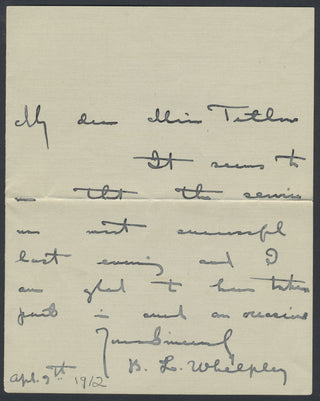 My dear Miss Tetlow
It seems to
me that the service
was most successful
last evening and I
am glad to have taken
part in such an occasion
Yours Sincerely
B. L. Whelpley
Apl. 9th 1912